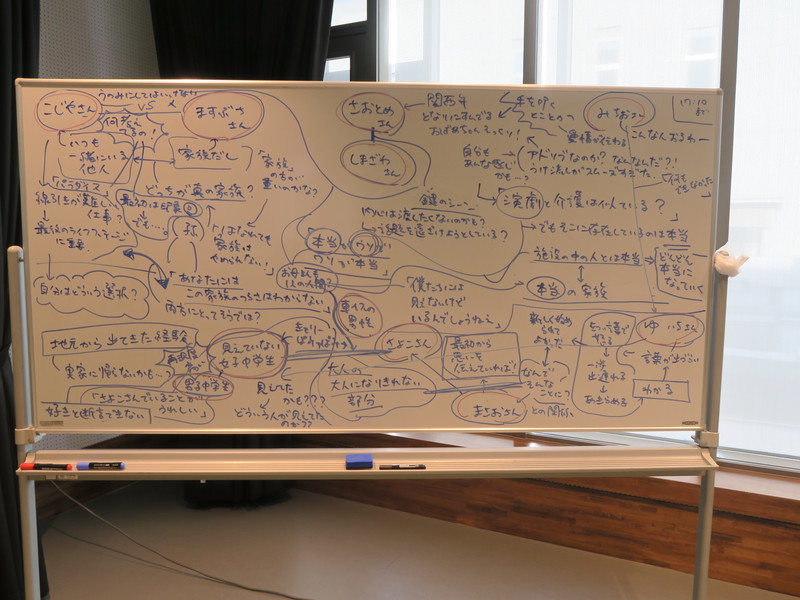 うのみにしてはいけない
こじやさん
VS
ますぶち
さん
何考え
てるの!
いつも
一緒にいる
他人
家族だし
「家族」
の方が
重いのかな?
「パラダイス」
線引きが難しい
仕事?
最後のライフステージ
に重要
どっちが真の家族?
最初は印鑑
でも…。
嫁
「はなれても
家族は
やめれない!
自分はどういう選択?
「あなたには
この家族のつらさはわからない
両方にとってそうでは?
さおとめ
さん
しまざわ
さん
関西弁
となりにすんでる
おばあちゃんそっくり!
自分も
あんな感じ
かも…?
手を叩く
とことこ
愛情が伝わる
みちおさん
こんなんおるわー
17:10
まで
アドリブなのか?なんなんだ?!
うけ流しがスムーズすぎた。
「何も
できなかった
鍵のシーン
話題を逸ざけようとしている?
「演劇と介護は似ている?」
でもそこに存在しているのは本当
施設の中の人とは本当
どんどん
本当に
なっていく
本当の家族
本当がウソ
ウソが本当
お母さんも
1人の人間?
車イスの
男性
「僕たちには
見えないけど
いるんでしょうねえ」
地元から出てきた経験
実家に帰らないかも…?
見えていない
女子中学生
男子中学生
「さよこさんでいることが
うれしい」
好きと断言できない
見えてた
かも???
どういう人が見えてた
のか??
さよこさん
大人の
大人になりきれない
部分
最初から
思いを
伝えていれば!
なんで
そんな
ことに?
まさおさん
との関係
ゆういちさん
言葉が出づらい
わかる
一歩
出遅れる
あきらめる